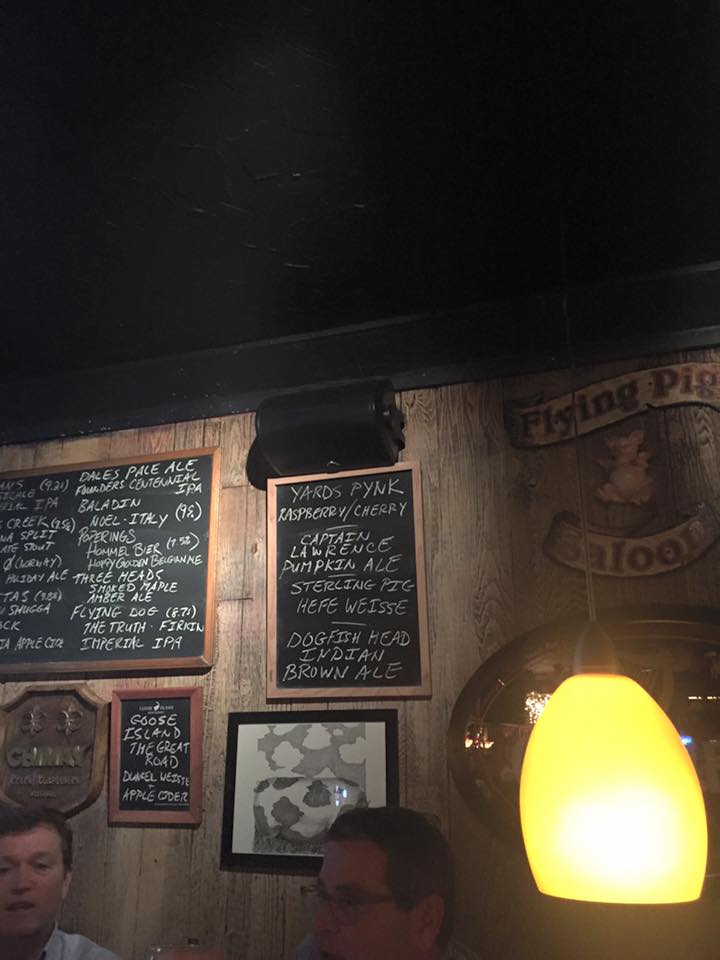 DALES PALE ALE
FOUNDERS CENTENNIAL
IPA
BALADIN
NOEL-ITALY (9%)
POPERINGS
HOMMEL BIER (7.5%)
HOPPY GOLDEN BELGIANNE
THREE HEADS
SMOKED MAPLE
AMBER ALE
FLYING DOG (8.7%)
THE TRUTH-FIRKIN
IMPERIAL IPA
(9.2%)
IAL IPA
CREEK (7.5%)
NA SPLIT
ATE STOUT
(NORWAY)
HOLIDAY ALE
TAS
SHUGGA
OCK
IA APPLE CIDER
YARDS PYNK
RASPBERRY/CHERRY
CAPTAIN
LAWRENCE
PUMPKIN ALE
STERLING PIG
HEFE WEISSE
DOGFISH HEAD
INDIAN
BROWN ALE
Flying Pig
Saloon
CHIMAY
GOOSE ISLAND
GOOSE
ISLAND
THE GREAT
ROAD
DUNKEL WEISSE
+
APPLE CIDER